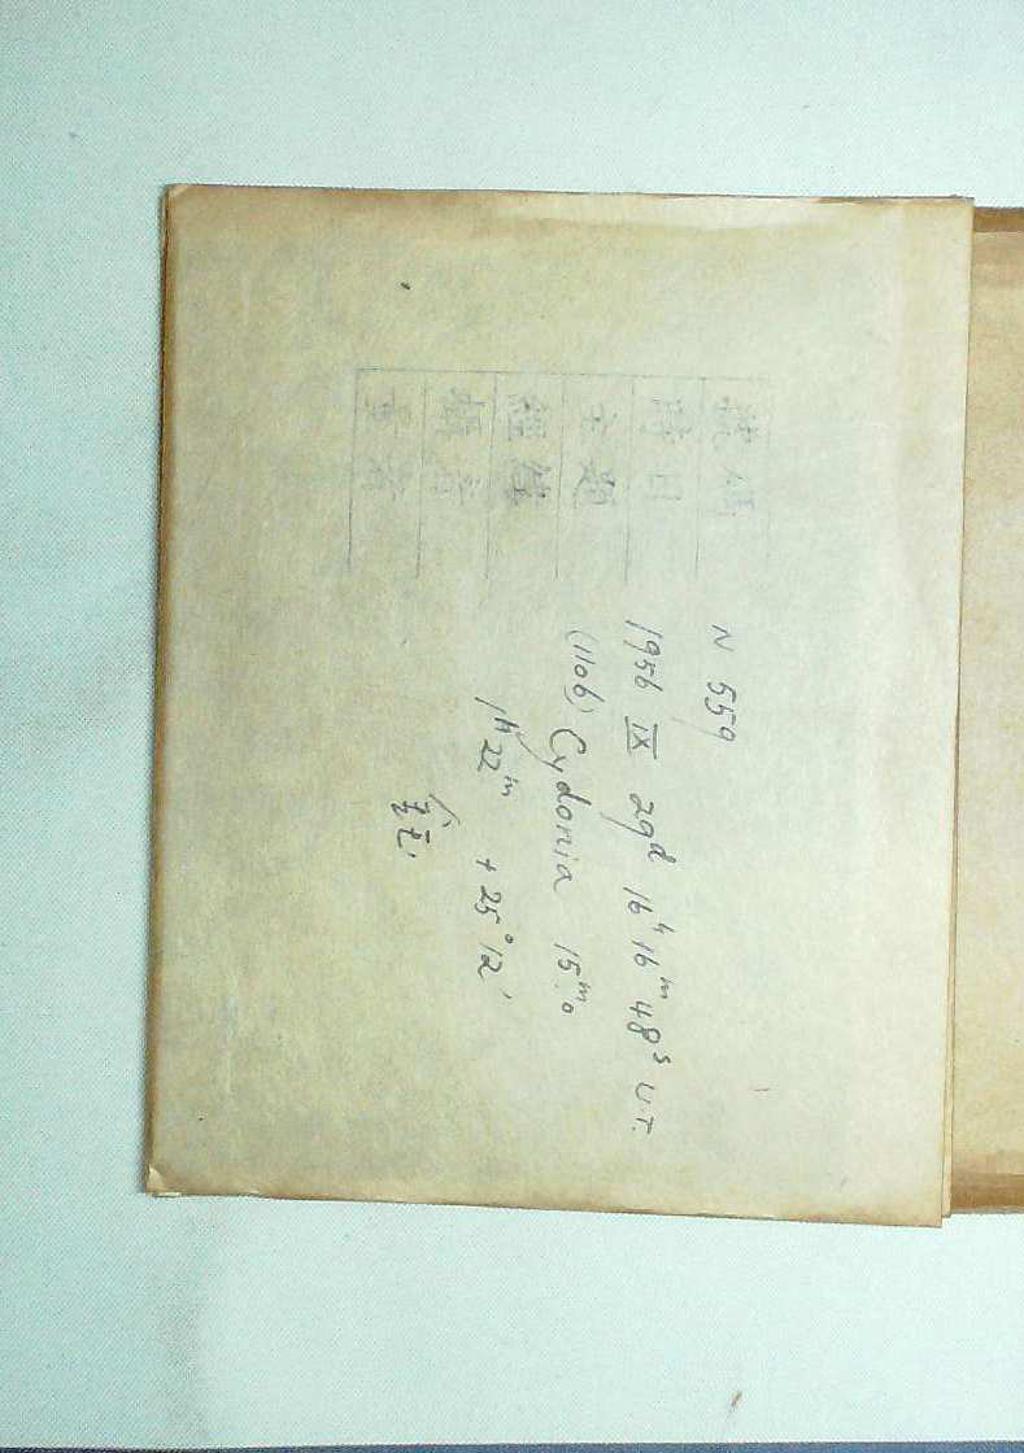 號碼 N 559
時日 1956 IX 29d 16h 16m 48s U.T.
主題 (1106) Cydonia 15m.0
1h22m +25°12'